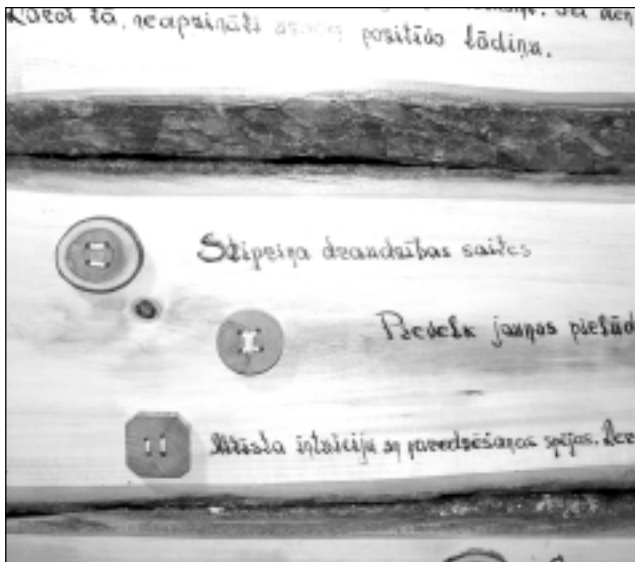 tā, neapzināti pozitīvo lādiņu.
Stiprina draudzības saites
Piesaista jaunus pielūd
Attīsta intuīciju un paredzēšanas spējas.